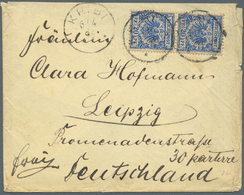 Fräulein
Clara Hofmann
Leipzig
Promenadenstraße
30 parterre
Deutschland